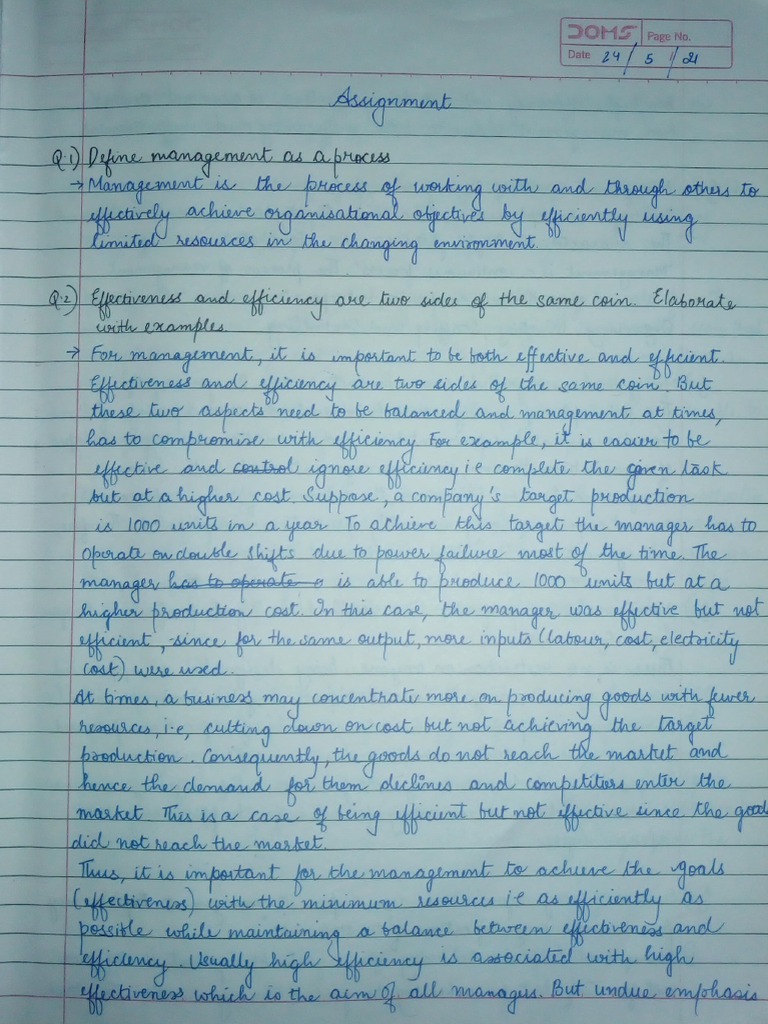 DOMS Page No.
Date 24/5/21
Assignment
Q.1) Define management as a process
→ Management is the process of working with and through others to
effectively achieve organisational objectives by efficiently using
limited resources in the changing environment.
Q.2) Effectiveness and efficiency are two sides of the same coin. Elaborate
with examples.
→ For management, it is important to be both effective and efficient.
Effectiveness and efficiency are two sides of the same coin. But
these two aspects need to be balanced and management at times,
has to compromise with efficiency. For example, it is easier to be
effective and control ignore efficiency i e complete the given task
but at a higher cost. Suppose, a company's target production
is 1000 units in a year. To achieve this target the manager has to
operate on double shifts due to power failure most of the time. The
manager has to operate o is able to produce 1000 units but at a
higher production cost. In this case, the manager was effective but not
efficient, since for the same output, more inputs (labour, cost, electricity
cost) were used.
At times, a business may concentrate more on producing goods with fewer
resources, i.e, cutting down on cost but not achieving the target
production. Consequently, the goods do not reach the market and
hence the demand for them declines and competitors enter the
market. This is a case of being efficient but not effective since the goods
did not reach the market.
Thus, it is important for the management to achieve the goals
(effectiveness) with the minimum resources i e as efficiently as
possible while maintaining a balance between effectiveness and
efficiency. Usually high efficiency is associated with high
effectiveness which is the aim of all managers. But undue emphasis